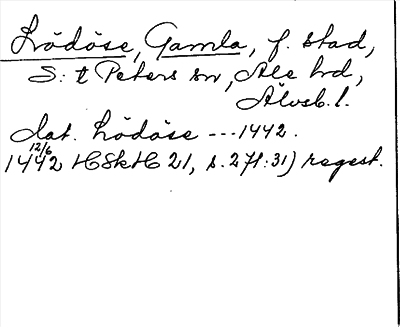 Lödöse, Gamla, f. stad,
S:t Peters sn, Ale hd,
Älvsb. l.
dat. Lödöse --- 1442.
12/6
1442 HSkH 21, s. 271:31) regest.